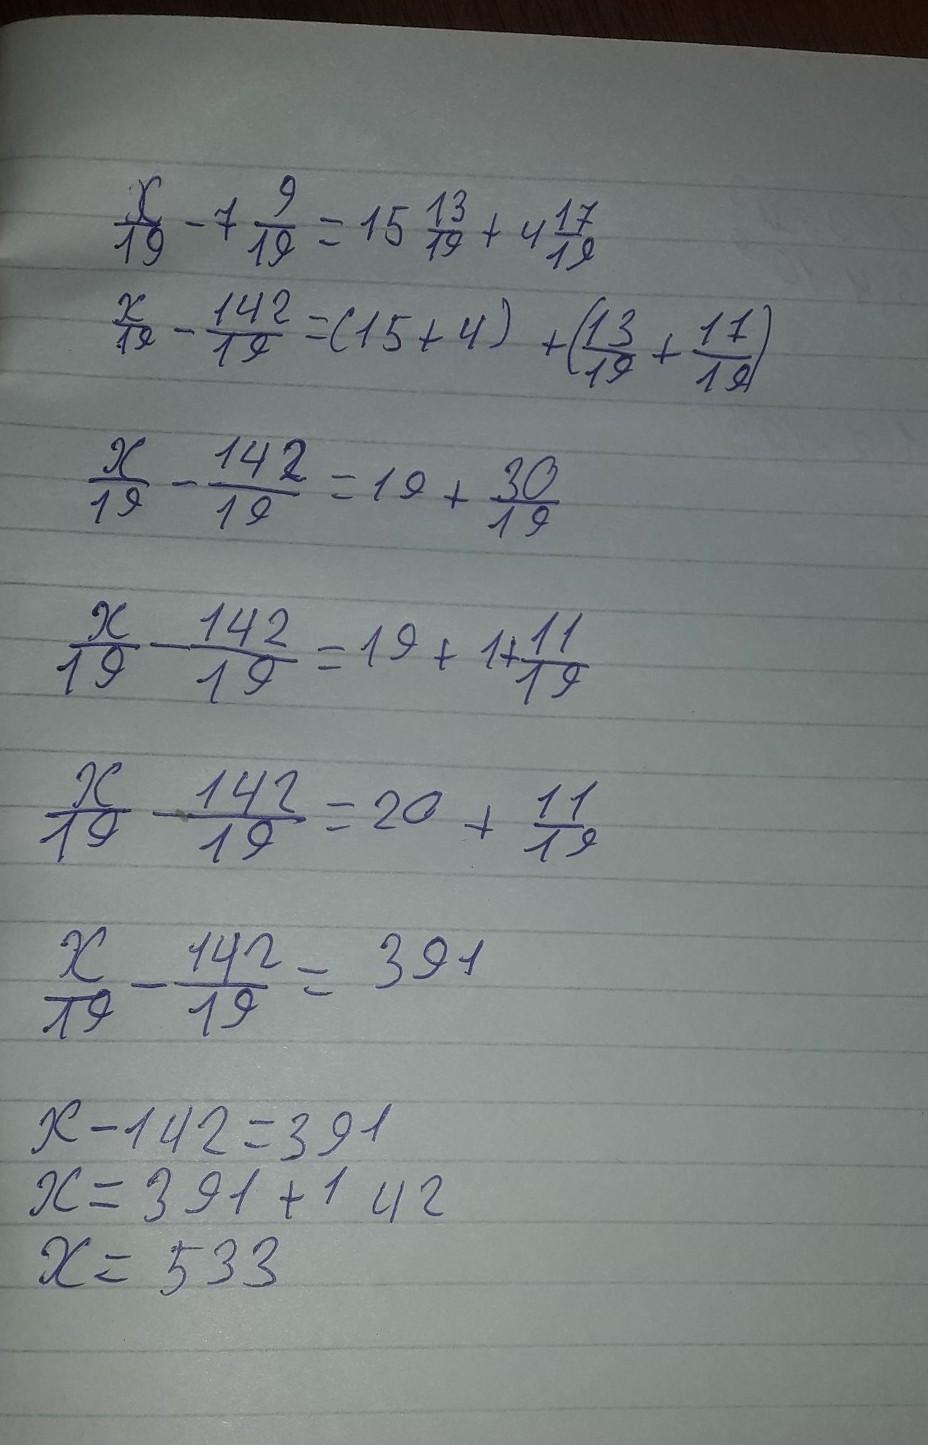 x/19 - 7 9/19 = 15 13/19 + 4 17/19
x/19 - 142/19 = (15 + 4) + (13/19 + 17/19)
x/19 - 142/19 = 19 + 30/19
x/19 - 142/19 = 19 + 1 + 11/19
x/19 - 142/19 = 20 + 11/19
x/19 - 142/19 = 391
x - 142 = 391
x = 391 + 142
x = 533